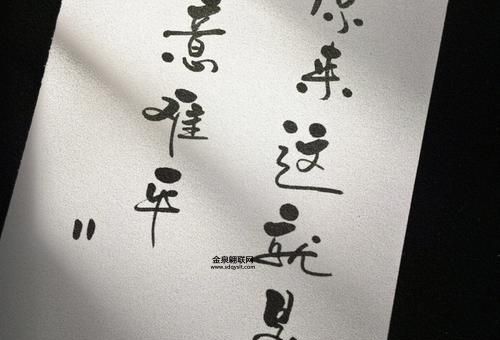 原来这就是
意难平
"
金泉翻联网
www.sdqyslt.com